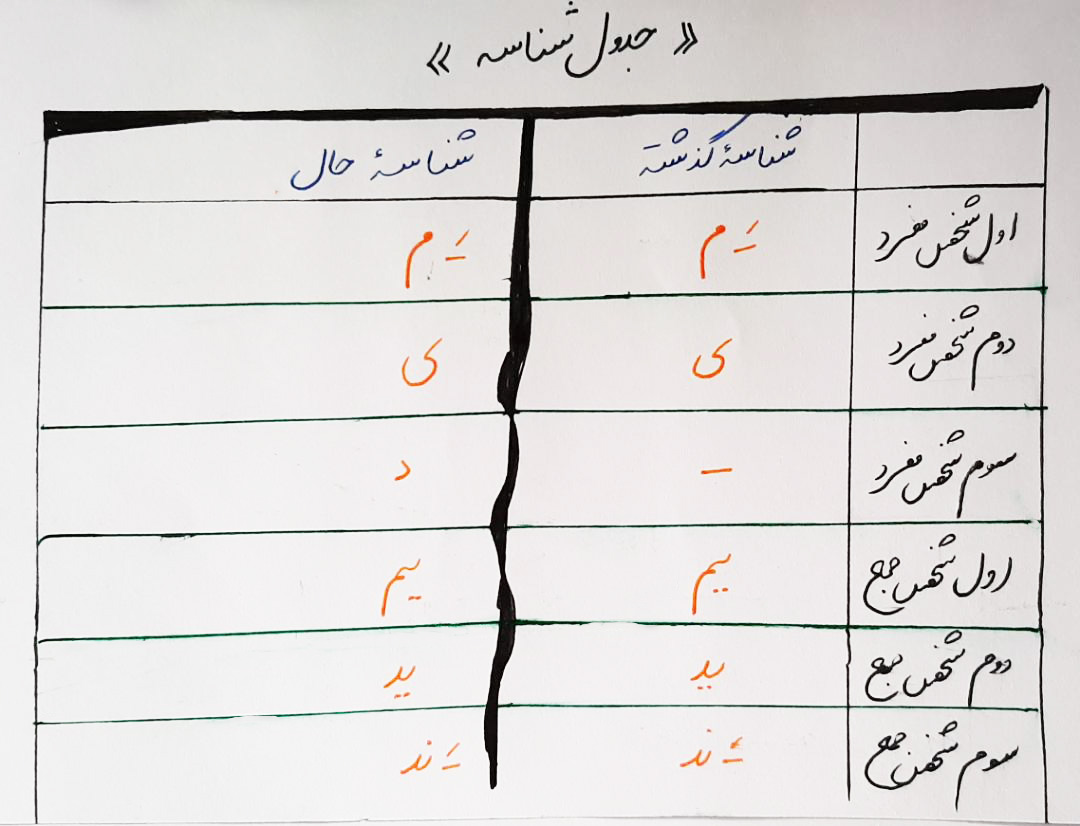 « جدول شناسه »
شناسهٔ گذشته شناسهٔ حال
اول شخص مفرد ــَ م ــَ م
دوم شخص مفرد ی ی
سوم شخص مفرد ــ د
اول شخص جمع یم یم
دوم شخص جمع ید ید
سوم شخص جمع ــَ ند ــَ ند